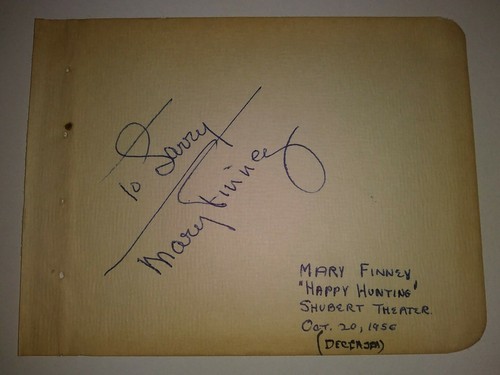 To Larry
Mary Finney
MARY FINNEY
"HAPPY HUNTING"
SHUBERT THEATER.
OCT. 20, 1956